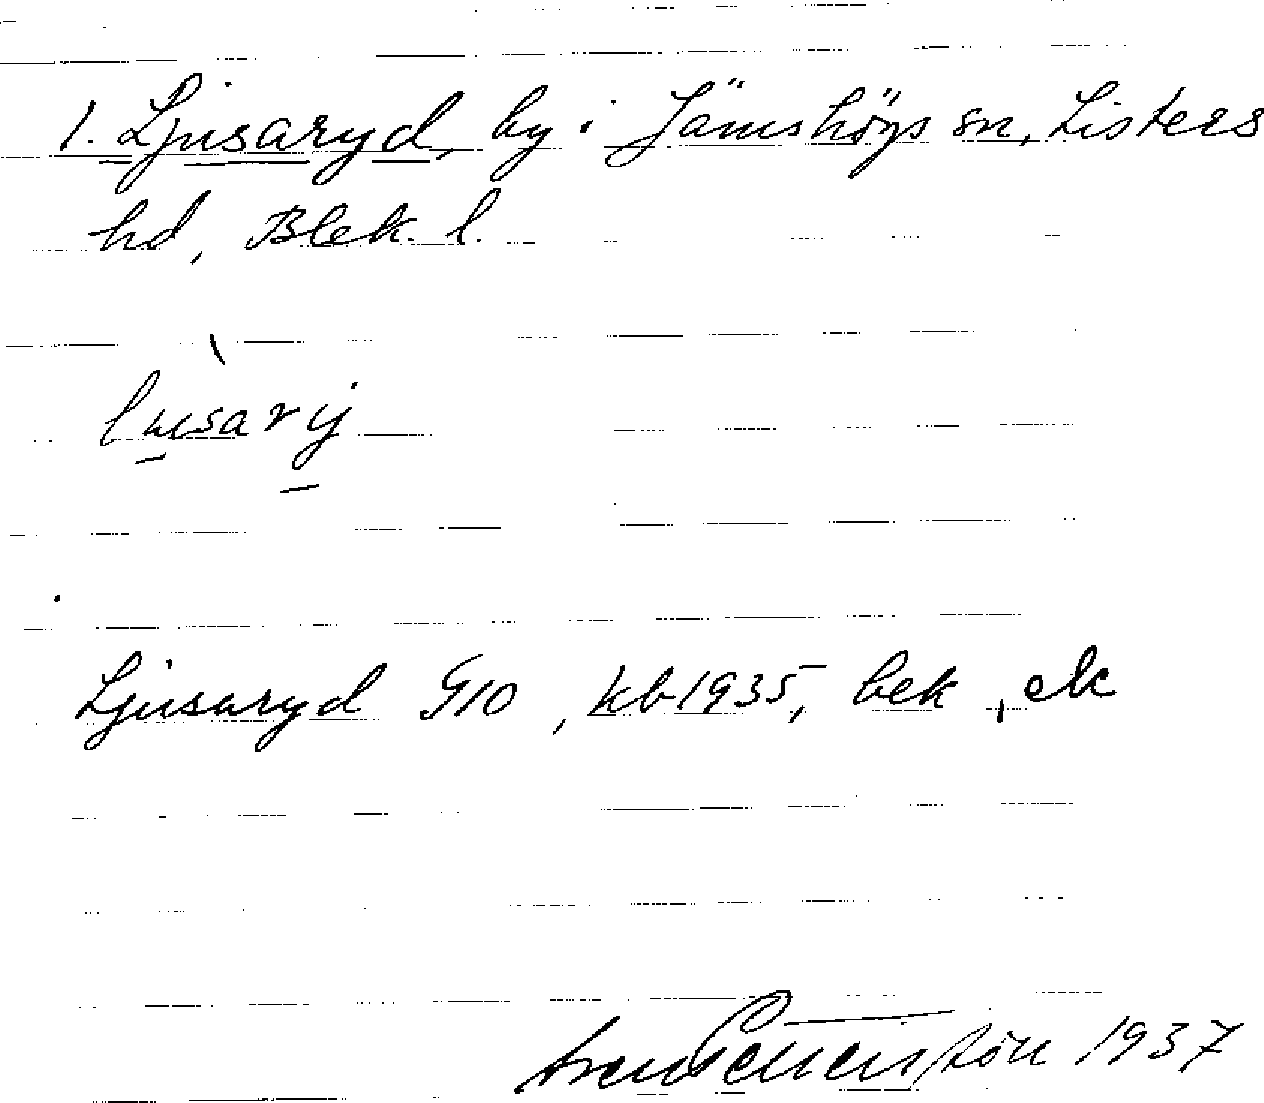 1. Ljusaryd, by i Jämshögs sn, Listers
hd, Blek. l.
lusarij
Ljusaryd G10, kb 1935, bek, ek
1937